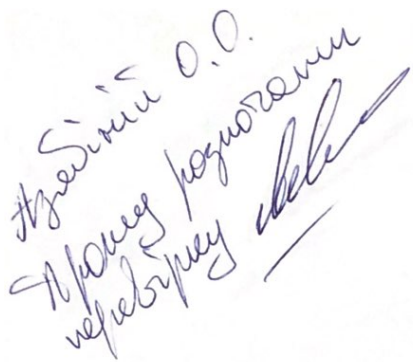 О.О.
Прошу розпочати
перевірку